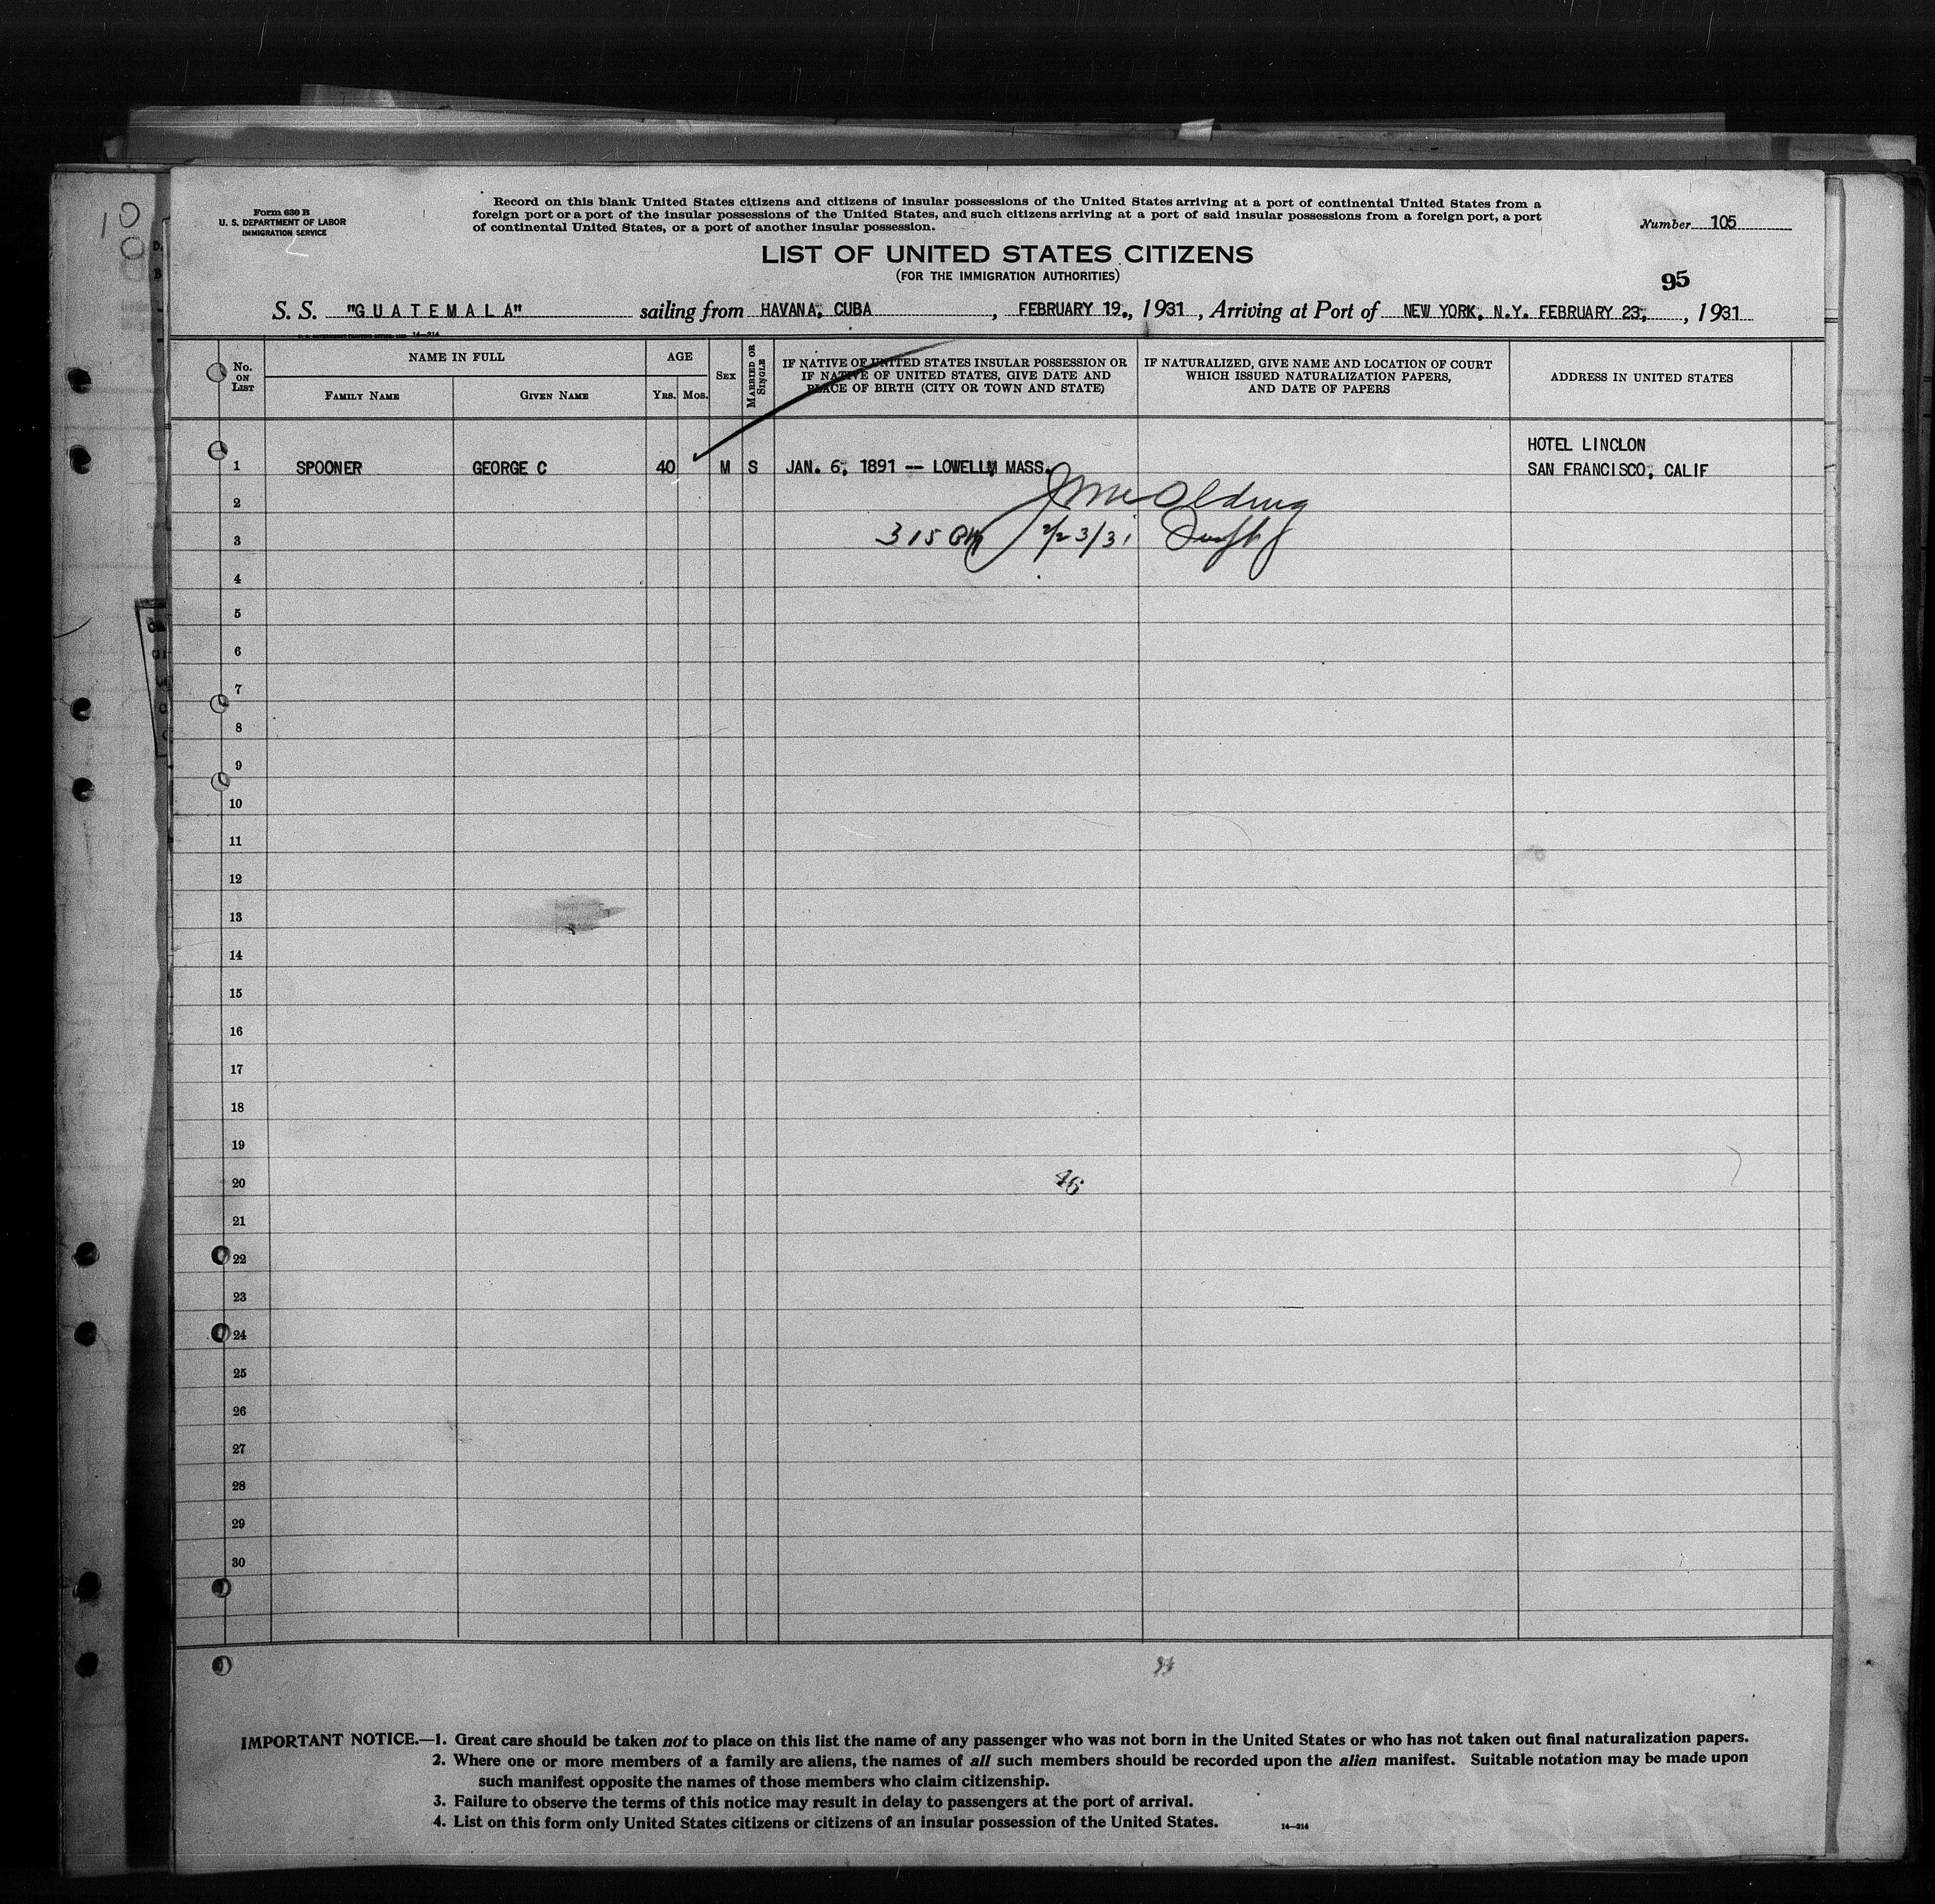 10
Form 630 B
U. S. DEPARTMENT OF LABOR
IMMIGRATION SERVICE
Record on this blank United States citizens and citizens of insular possessions of the United States arriving at a port of continental United States from a
foreign port or a port of the insular possessions of the United States, and such citizens arriving at a port of said insular possessions from a foreign port, a port
of continental United States, or a port of another insular possession.
Number 105
LIST OF UNITED STATES CITIZENS
(FOR THE IMMIGRATION AUTHORITIES)
95
S. S. "GUATEMALA" sailing from HAVANA, CUBA, FEBRUARY 19., 1931, Arriving at Port of NEW YORK, N.Y. FEBRUARY 23, , 1931
14—214
No. ON LIST
NAME IN FULL
FAMILY NAME
GIVEN NAME
AGE
YRS. MOS.
SEX
MARRIED OR SINGLE
IF NATIVE OF UNITED STATES INSULAR POSSESSION OR
IF NATIVE OF UNITED STATES, GIVE DATE AND
PLACE OF BIRTH (CITY OR TOWN AND STATE)
IF NATURALIZED, GIVE NAME AND LOCATION OF COURT
WHICH ISSUED NATURALIZATION PAPERS,
AND DATE OF PAPERS
ADDRESS IN UNITED STATES
HOTEL LINCLON
1 SPOONER GEORGE C 40 M S JAN. 6, 1891 -- LOWELLM MASS. SAN FRANCISCO, CALIF
2
3 315 PM 2/23/31
4
5
6
7
8
9
10
11
12
13
14
15
16
17
18
19
20 46
21
22
23
24
25
26
27
28
29
30
IMPORTANT NOTICE.—1. Great care should be taken not to place on this list the name of any passenger who was not born in the United States or who has not taken out final naturalization papers.
2. Where one or more members of a family are aliens, the names of all such members should be recorded upon the alien manifest. Suitable notation may be made upon
such manifest opposite the names of those members who claim citizenship.
3. Failure to observe the terms of this notice may result in delay to passengers at the port of arrival.
4. List on this form only United States citizens or citizens of an insular possession of the United States. 14—214